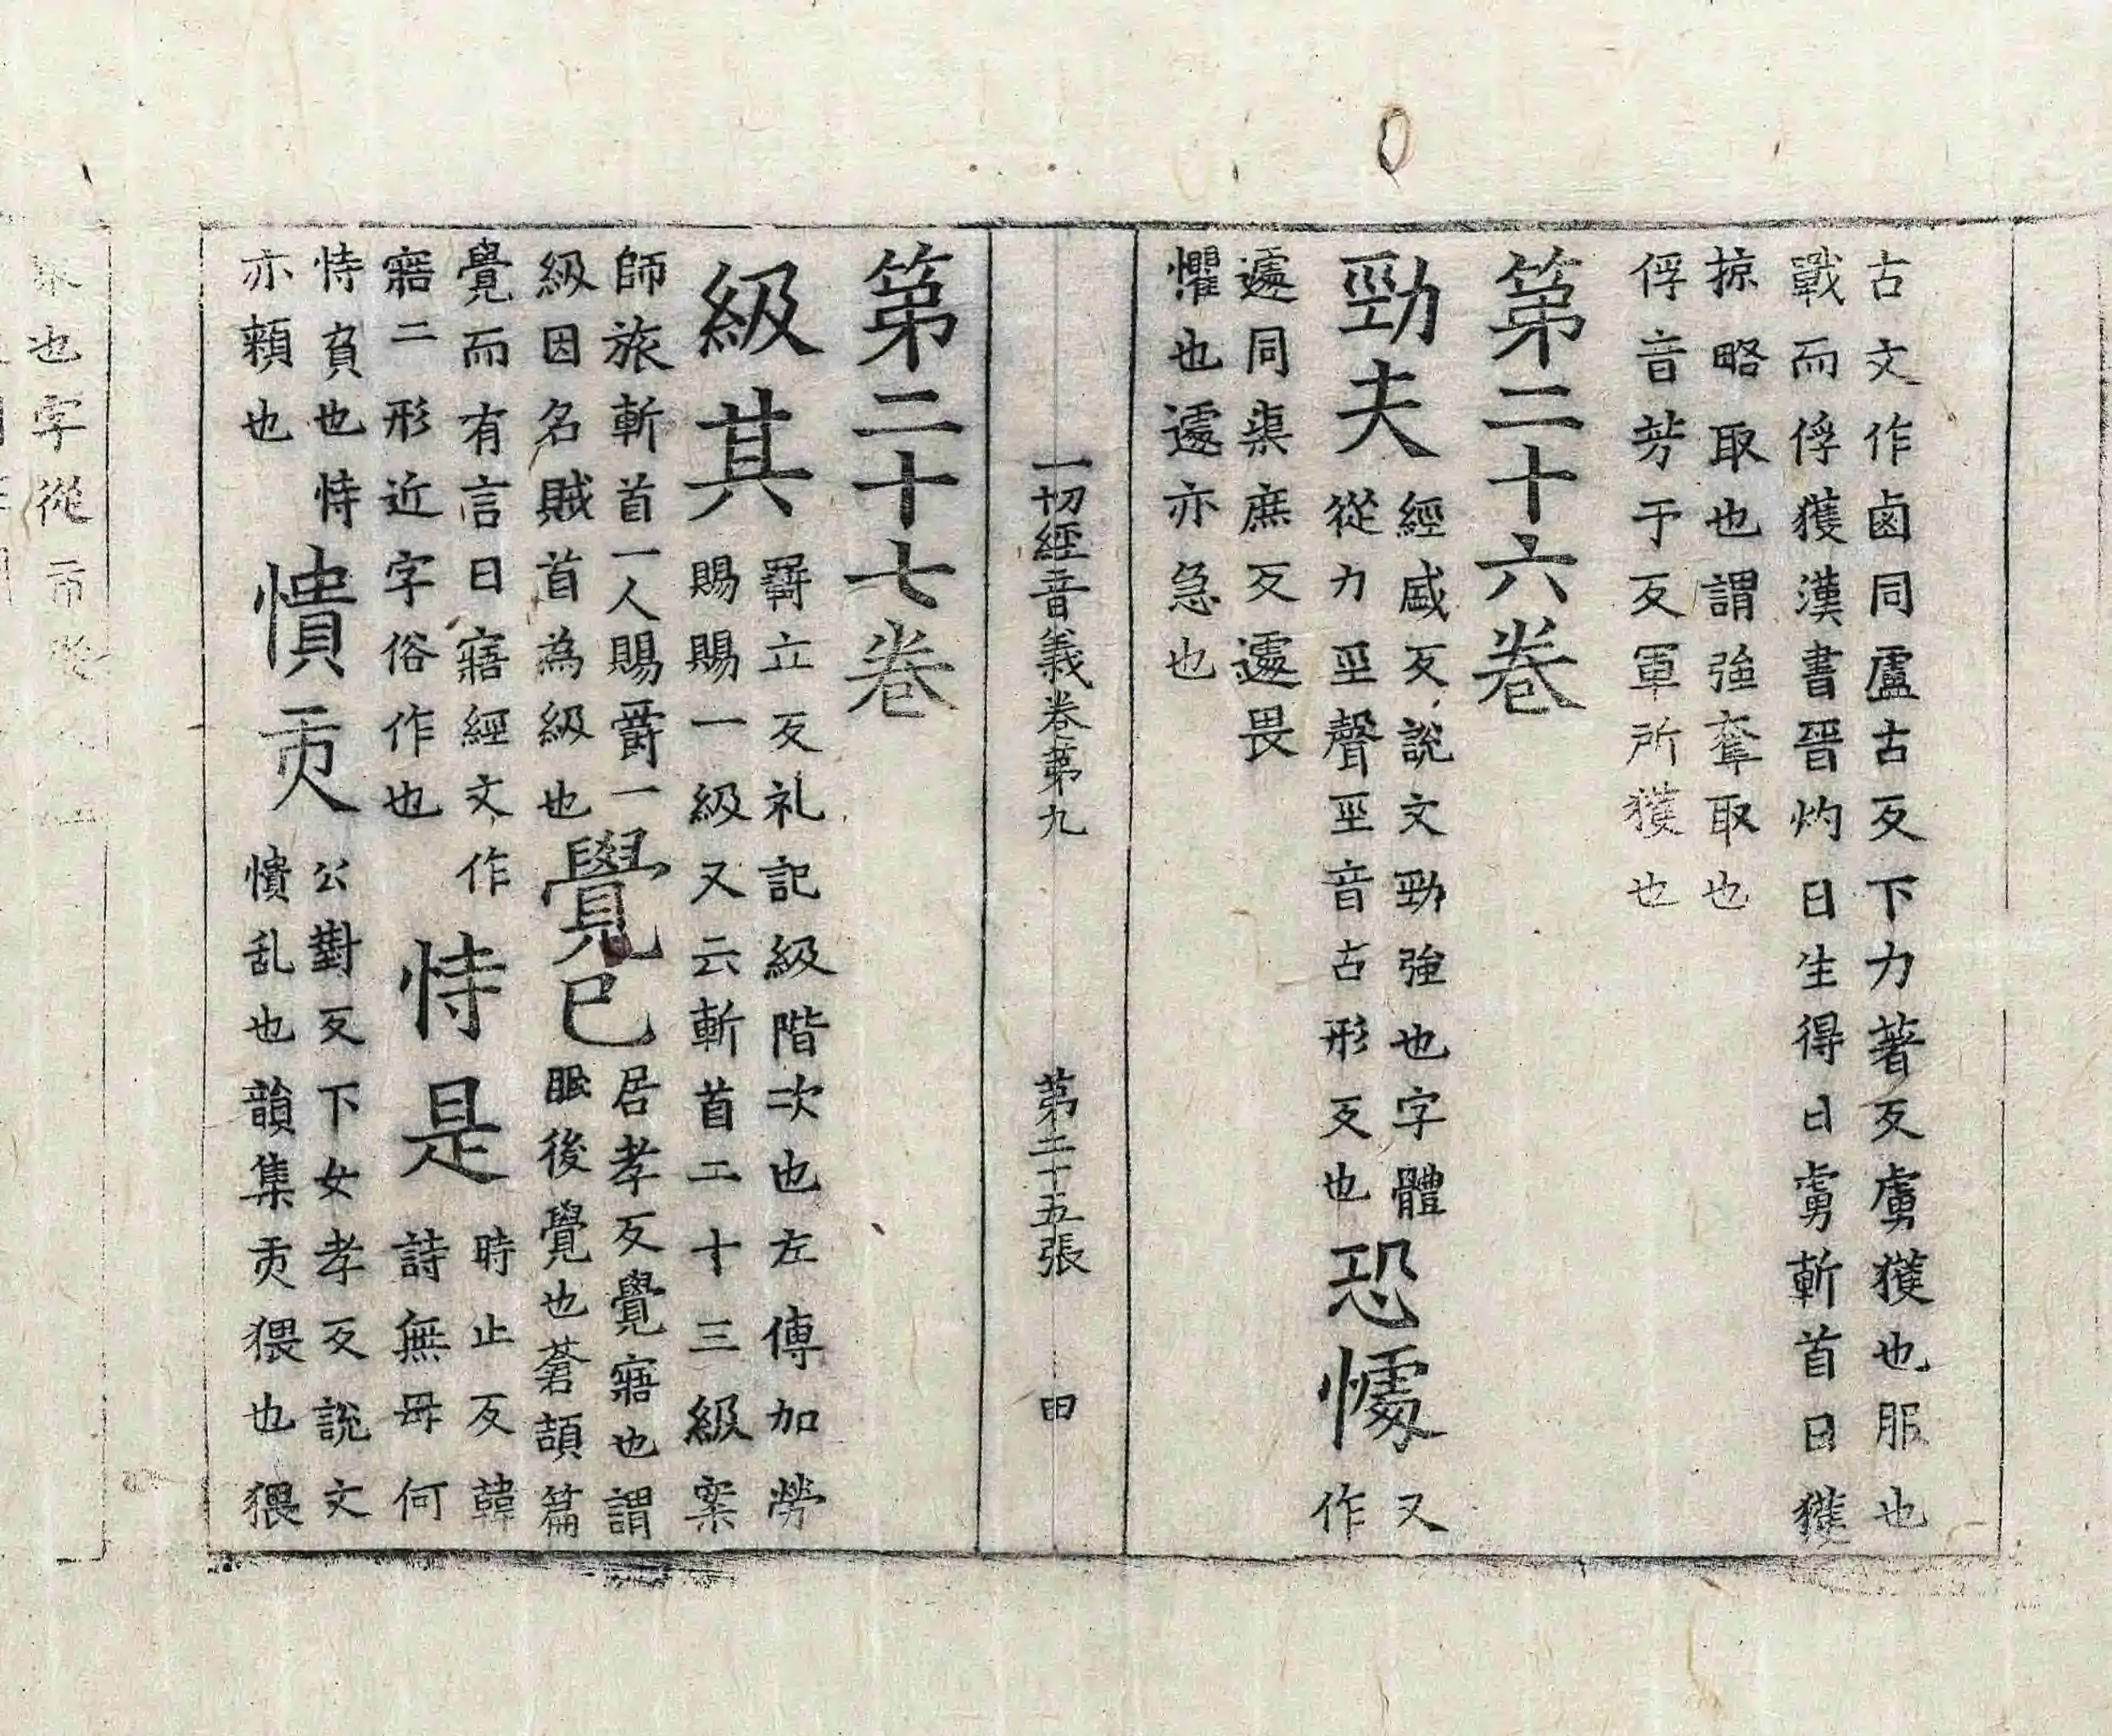 古文作鹵同盧古反下力著反虜獲也服也
戰而俘獲漢書晉灼曰生得曰虜斬首曰獲
掠略取也謂強奪取也
俘音芳于反軍所獲也
第二十六卷
勁夫
經盛反說文勁強也字體
從力巠聲巠音古形反也
恐懅
又
作
遽同渠庶反遽畏
懼也遽亦急也
一切經音義卷第九 第二十五張 曰
第二十七卷
級其
羇立反礼記級階次也左傳加勞
賜賜一級又云斬首二十三級案
師旅斬首一人賜爵一
級因名賊首為級也
覺已
居孝反覺寤也謂
眠後覺也蒼頡篇
覺而有言曰寤經文作
寤二形近字俗作也
恃是
時止反韓
詩無毋何
恃負也恃
亦賴也
憒
公對反下女孝反說文
憒乱也韻集猥也猥
也字從市從